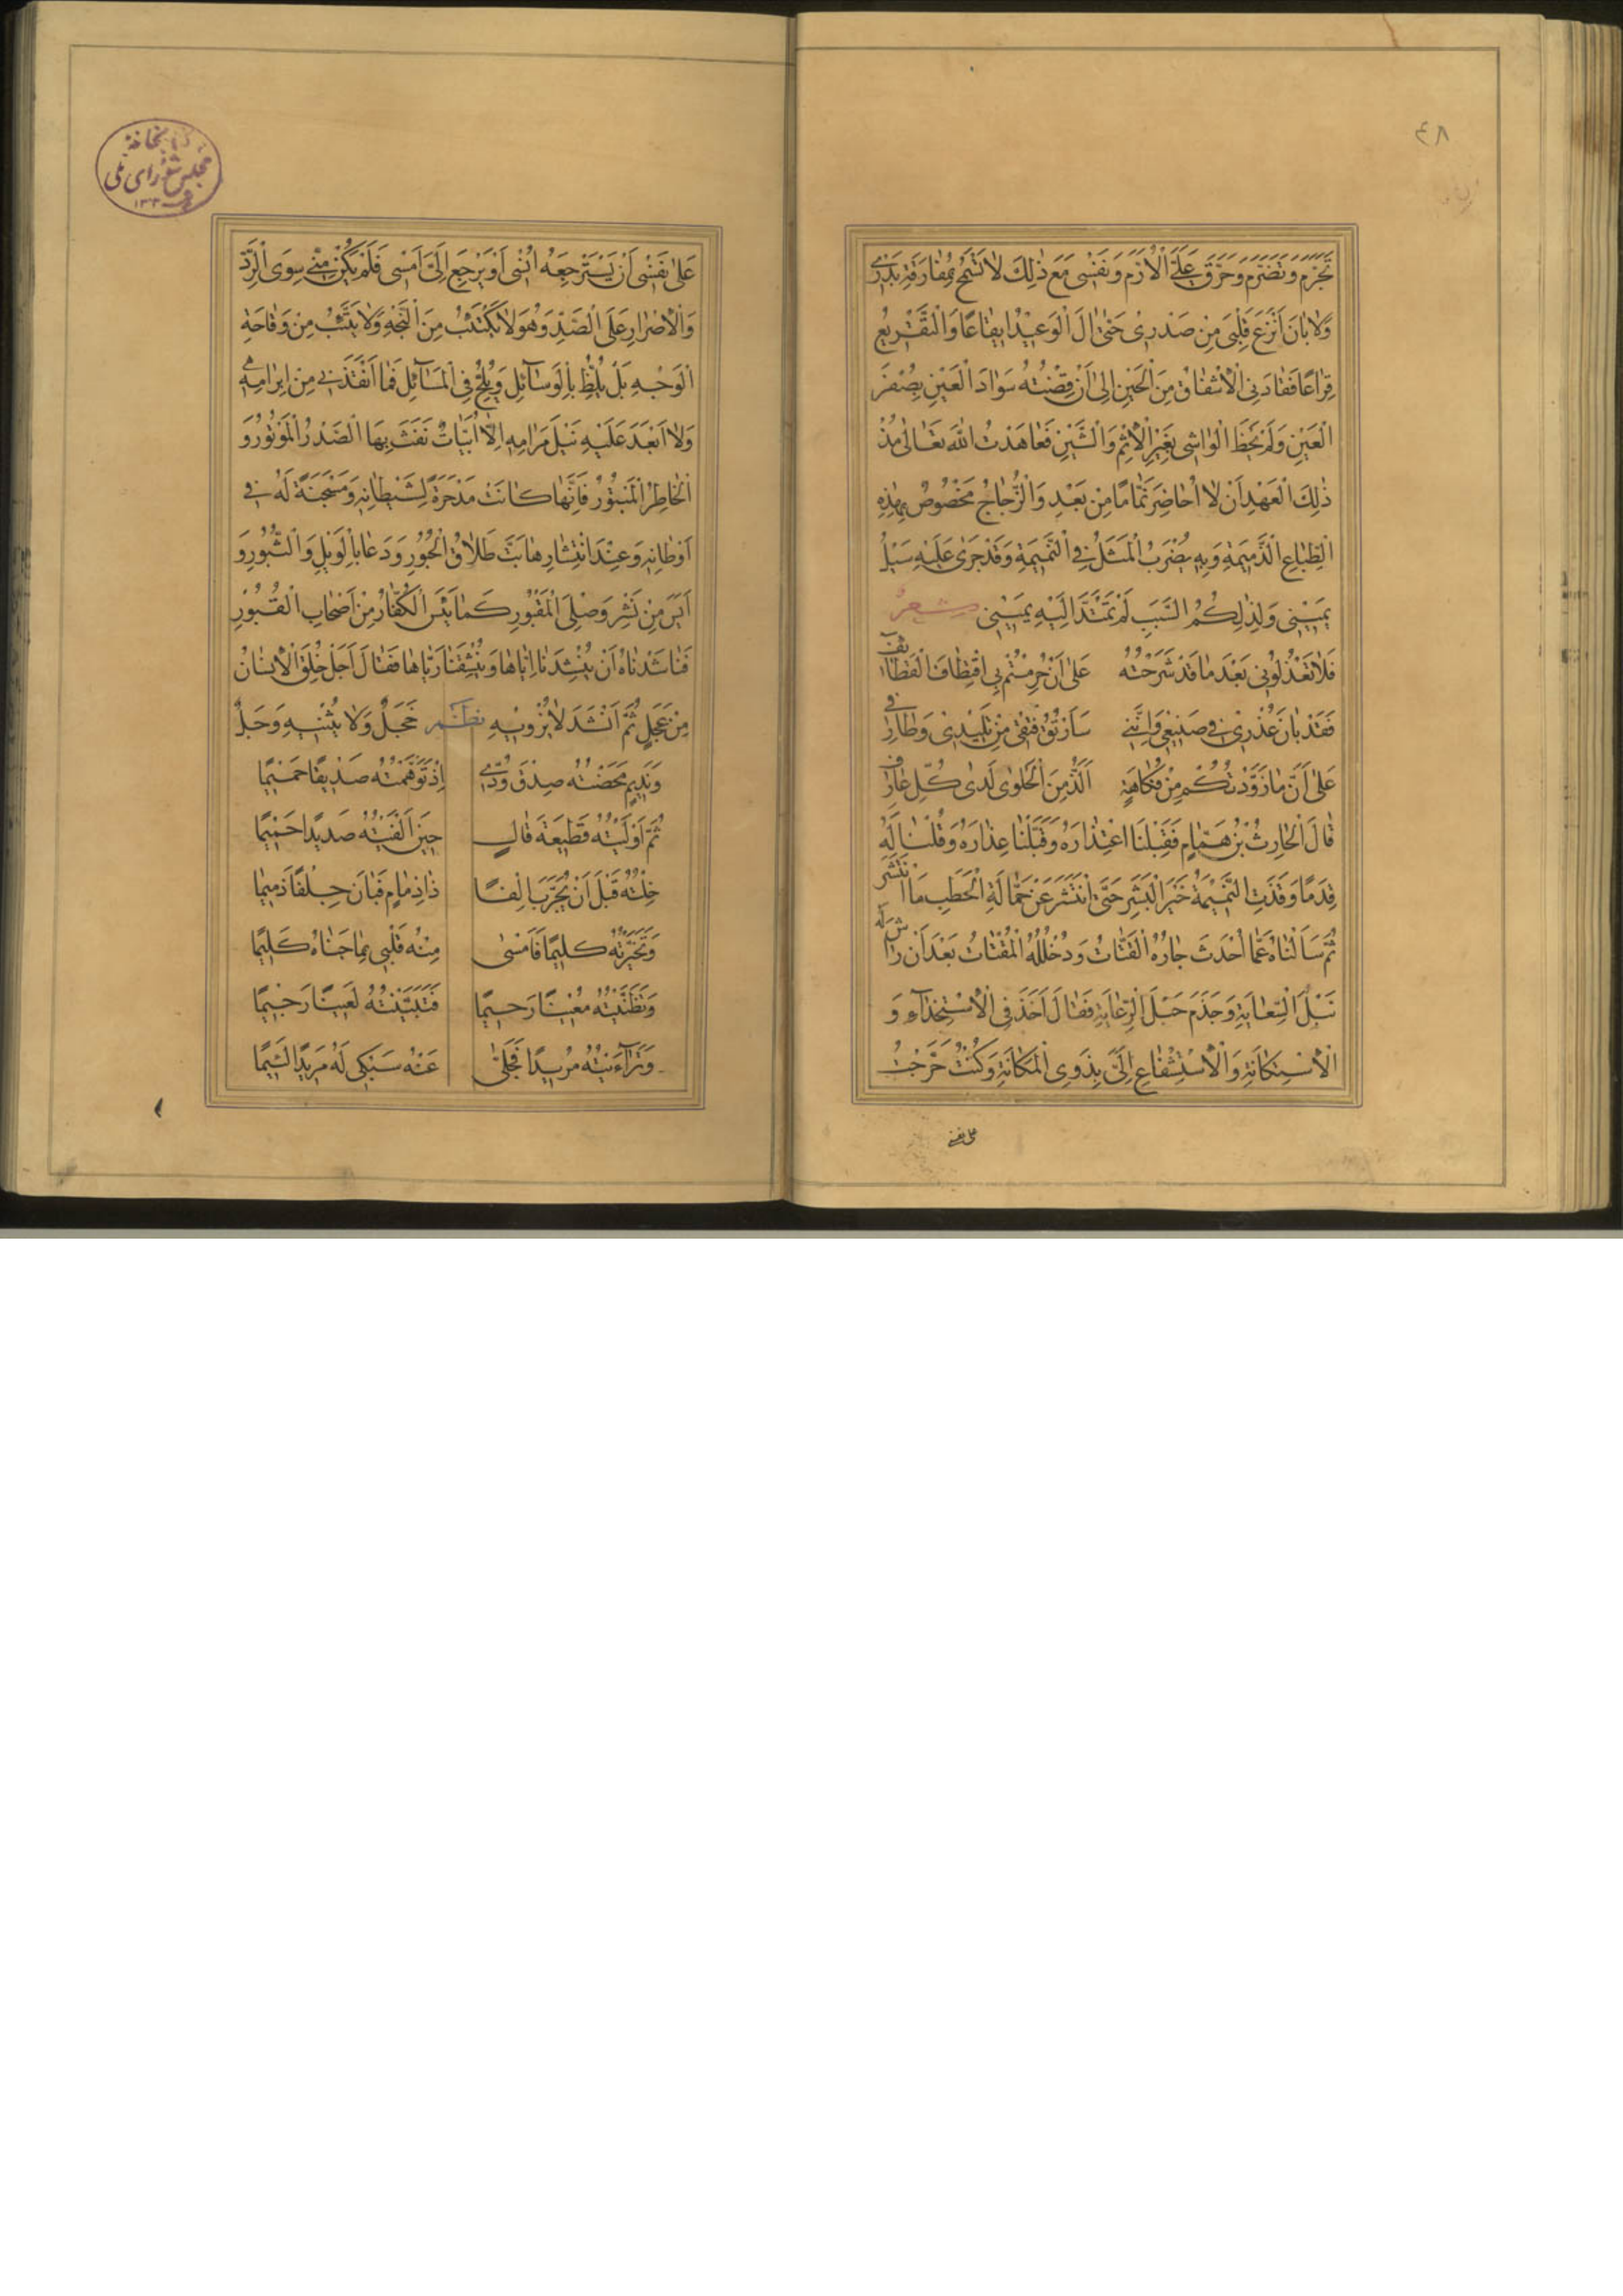 ٤٨
تَجَرَّمَ وَتَضَرَّمَ وَحَرَّقَ عَلَيَّ الْأُرَّمَ وَنَفْسِى مَعَ ذٰلِكَ لَا تَسْمَحُ بِمُفَارَقَةِ بَدْرِى
وَلَا بِأَنْ أَنْزِعَ قَلْبِى مِنْ صَدْرِى حَتّٰى اٰلَ الْوَعِيْدُ اِيقَاعًا وَالتَّقْرِيعُ
قِرَاعًا فَقَادَنِى الْاِشْفَاقُ مِنَ الْحَيْنِ اِلٰى اَنْ قِضْتُهُ سَوَادَ الْعَيْنِ بِصُفْرَ
الْعَيْنِ وَلَمْ يَحْظَ الْوَاشِى بِغَيْرِ الْاِثْمِ وَالشَّيْنِ فَعَاهَدْتُ اللّٰهَ تَعَالٰى مُذْ
ذٰلِكَ الْعَهْدِ اَنْ لَا اُحَاضِرَ نَمَّامًا مِنْ بَعْدِ وَالزُّجَاجُ مَخْصُوصٌ بِهٰذِهِ
الطِّبَاعِ الذَّمِيمَةِ وَبِهِ يُضْرَبُ الْمَثَلُ فِى النَّمِيمَةِ وَقَدْ جَرٰى عَلَيْهِ سَيْلُ
يَمِيْنِى وَلِذٰلِكُمُ السَّبَبِ لَمْ تَمْتَدَّ اِلَيْهِ يَمِيْنِى شعر
فَلَا تَعْذُلُوْنِى بَعْدَ مَا قَدْ شَرَحْتُهُ عَلٰى اَنْ حُرِمْتُمْ بِى اقْتِطَافَ الْقَطَائِفِ
فَقَدْ بَانَ عُذْرِى فِى صَنِيْعِى وَاِنَّنِى سَاَرْتُقُ فَتْقِى مِنْ تَلِيْدِى وَطَارِفِى
عَلٰى اَنَّ مَا زَوَّدْتُكُمْ مِنْ فُكَاهَةٍ اَلَذُّ مِنَ الْحَلْوٰى لَدٰى كُلِّ عَارِفِ
قَالَ الْحَارِثُ بْنُ هَمَّامٍ فَقَبِلْنَا اعْتِذَارَهُ وَقَبَّلْنَا عِذَارَهُ وَقُلْنَا لَهُ
قِدَمًا وَقَذَتِ النَّمِيْمَةُ خَيْرَ الْبَشَرِ حَتّٰى انْتَشَرَ عَنْ حَمَّالَةِ الْحَطَبِ مَا انْتَشَرَ
ثُمَّ سَاَلْنَاهُ عَمَّا اَحْدَثَ جَارُهُ الْقَتَّاتُ وَدُخْلُلُهُ الْمُفْتَاتُ بَعْدَ اَنْ رَاشَ لَهُ
نَبْلَ السِّعَايَةِ وَجَذَمَ حَبْلَ الرِّعَايَةِ فَقَالَ اَخَذَ فِى الْاِسْتِخْذَاءِ وَ
الْاِسْتِكَانَةِ وَالْاِسْتِشْفَاعِ اِلَيَّ بِذَوِى الْمَكَانَةِ وَكُنْتُ حَرَّجْتُ
على نفسى
كتابخانه
مجلس شورای ملی
عَلٰى نَفْسِى اَنْ يَسْتَرْجِعَهُ اُنْسِى اَوْ يَرْجِعَ اِلَيَّ اَمْسِى فَلَمْ يَكُنْ مِنِّى سِوَى الرَّدِّ
وَالْاِصْرَارِ عَلَى الصَّدِّ وَهُوَ لَا يَكْتَئِبُ مِنَ النَّجْهِ وَلَا يَتَّئِبُ مِنْ وَقَاحَةِ
الْوَجْهِ بَلْ يُلِظُّ بِالْوَسَائِلِ وَيُلِحُّ فِى الْمَسَائِلِ فَمَا اَنْقَذَنِى مِنْ اِبْرَامِهِ
وَلَا اَبْعَدَ عَلَيْهِ نَيْلَ مَرَامِهِ اِلَّا اَبْيَاتٌ نَفَثَ بِهَا الصَّدْرُ الْمَوْتُوْرُ وَ
الْخَاطِرُ الْمَبْتُوْرُ فَاِنَّهَا كَانَتْ مَدْحَرَةً لِشَيْطَانِهِ وَمَسْجَنَةً لَهُ فِى
اَوْطَانِهِ وَعِنْدَ انْتِشَارِهَا بَتَّ طَلَاقَ الْحُبُوْرِ وَدَعَا بِالْوَيْلِ وَالثُّبُوْرِ وَ
اَيِسَ مِنْ نَشْرِ وَصْلِىَ الْمَقْبُوْرِ كَمَا يَئِسَ الْكُفَّارُ مِنْ اَصْحَابِ الْقُبُوْرِ
فَنَاشَدْنَاهُ اَنْ يُنْشِدَنَا اِيَّاهَا وَيُنْشِقَنَا رَيَّاهَا فَقَالَ اَجَلْ خُلِقَ الْاِنْسَانُ
مِنْ عَجَلٍ ثُمَّ اَنْشَدَ لَا يَزْوِيْهِ نظم خَجَلٌ وَلَا يَثْنِيْهِ وَجَلٌ
وَنَدِيْمٍ مَحَضْتُهُ صِدْقَ وُدِّى اِذْ تَوَهَّمْتُهُ صَدِيْقًا حَمِيْمًا
ثُمَّ اَوْلَيْتُهُ قَطِيْعَةَ قَالٍ حِيْنَ اَلْفَيْتُهُ صَدِيْدًا حَمِيْمًا
خِلْتُهُ قَبْلَ اَنْ يُجَرَّبَ اِلْفًا ذَا ذِمَامٍ فَبَانَ جِلْفًا ذَمِيْمًا
وَتَخَيَّرْتُهُ كَلِيْمًا فَاَمْسٰى مِنْهُ قَلْبِى بِمَا جَنَاهُ كَلِيْمًا
وَتَظَنَّيْتُهُ مُعِيْنًا رَحِيْمًا فَتَبَيَّنْتُهُ لَعِيْنًا رَجِيْمًا
وَتَرَاءَيْتُهُ مُرِيْدًا فَجَلّٰى عَنْهُ سَبْكِى لَهُ مَرِيْدًا لَئِيْمًا